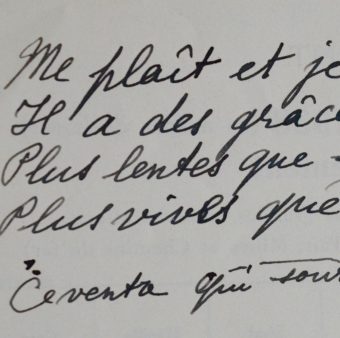 Me plaît et je
Il a des grâce
Plus lentes que
Plus vives que
qui sour